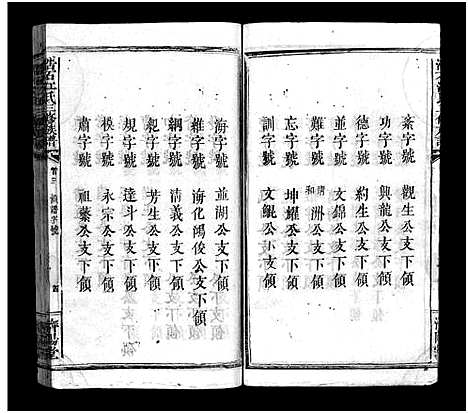 紊字號 觀生公支下領
功字號 興龍公支下領
德字號 約生公支下領
並字號 文錦公支下領
難字號 清和洲公支下領
忘字號 坤耀公支下領
訓字號 文鯤公支下領
海字號 並湖公支下領
維字號 海化鴻俊公支下領
綱字號 清義公支下領
親字號 芳生公支下領
規字號 達斗公支下領
模字號 永宗公支下領
肅字號 祖蓁公支下領
江氏三修族譜
領譜字號
濟陽堂